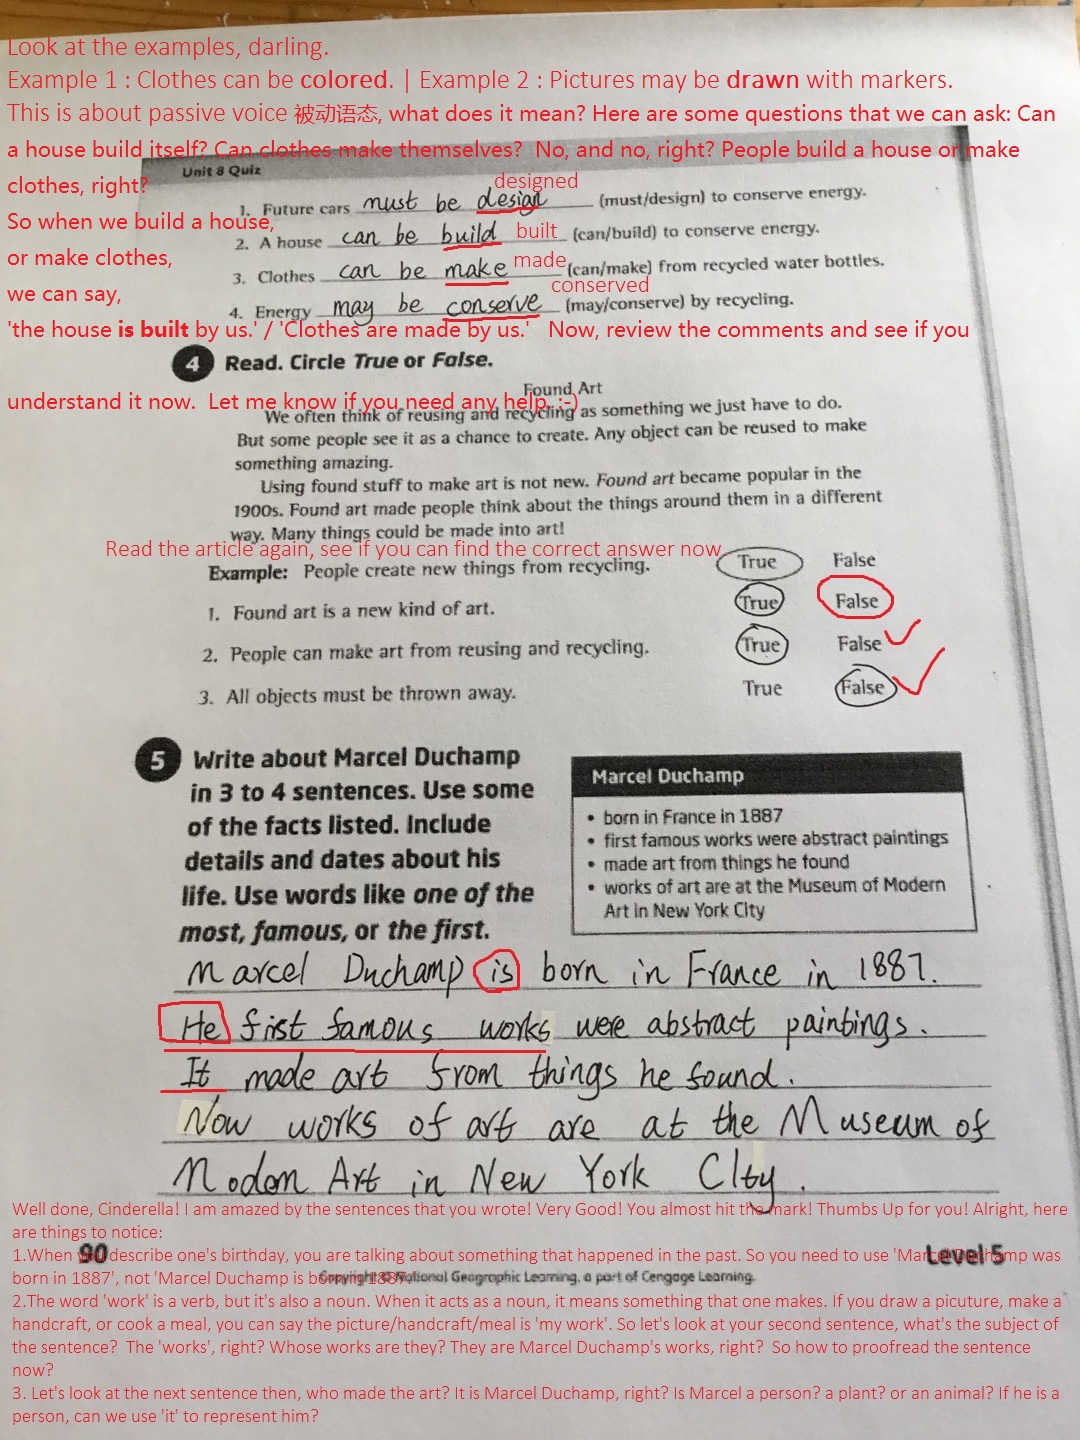 Look at the examples, darling.
Example 1 : Clothes can be colored. | Example 2 : Pictures may be drawn with markers.
This is about passive voice 被动语态, what does it mean? Here are some questions that we can ask: Can
a house build itself? Can clothes make themselves?  No, and no, right? People build a house or make
clothes, right?
So when we build a house,
or make clothes,
we can say,
'the house is built by us.' / 'Clothes are made by us.'   Now, review the comments and see if you
understand it now.  Let me know if you need any help. :-)
Unit 8 Quiz
designed
1. Future cars must be design (must/design) to conserve energy.
2. A house can be build built (can/build) to conserve energy.
3. Clothes can be make made (can/make) from recycled water bottles.
conserved
4. Energy may be conserve (may/conserve) by recycling.
4 Read. Circle True or False.
Found Art
We often think of reusing and recycling as something we just have to do.
But some people see it as a chance to create. Any object can be reused to make
something amazing.
Using found stuff to make art is not new. Found art became popular in the
1900s. Found art made people think about the things around them in a different
way. Many things could be made into art!
Read the article again, see if you can find the correct answer now.
Example: People create new things from recycling. True False
1. Found art is a new kind of art. True False
2. People can make art from reusing and recycling. True False
3. All objects must be thrown away. True False
5 Write about Marcel Duchamp
in 3 to 4 sentences. Use some
of the facts listed. Include
details and dates about his
life. Use words like one of the
most, famous, or the first.
Marcel Duchamp
• born in France in 1887
• first famous works were abstract paintings
• made art from things he found
• works of art are at the Museum of Modern
Art in New York City
Marcel Duchamp is born in France in 1887.
He fist famous works were abstract paintings.
It made art from things he found.
Now works of art are at the Museum of
Modon Art in New York CIty.
Well done, Cinderella! I am amazed by the sentences that you wrote! Very Good! You almost hit the mark! Thumbs Up for you! Alright, here
are things to notice:
1.When you describe one's birthday, you are talking about something that happened in the past. So you need to use 'Marcel Duchamp was
born in 1887', not 'Marcel Duchamp is born in 1887'.
90
Level 5
Copyright © National Geographic Learning, a part of Cengage Learning.
2.The word 'work' is a verb, but it's also a noun. When it acts as a noun, it means something that one makes. If you draw a picuture, make a
handcraft, or cook a meal, you can say the picture/handcraft/meal is 'my work'. So let's look at your second sentence, what's the subject of
the sentence?  The 'works', right? Whose works are they? They are Marcel Duchamp's works, right?  So how to proofread the sentence
now?
3. Let's look at the next sentence then, who made the art? It is Marcel Duchamp, right? Is Marcel a person? a plant? or an animal? If he is a
person, can we use 'it' to represent him?